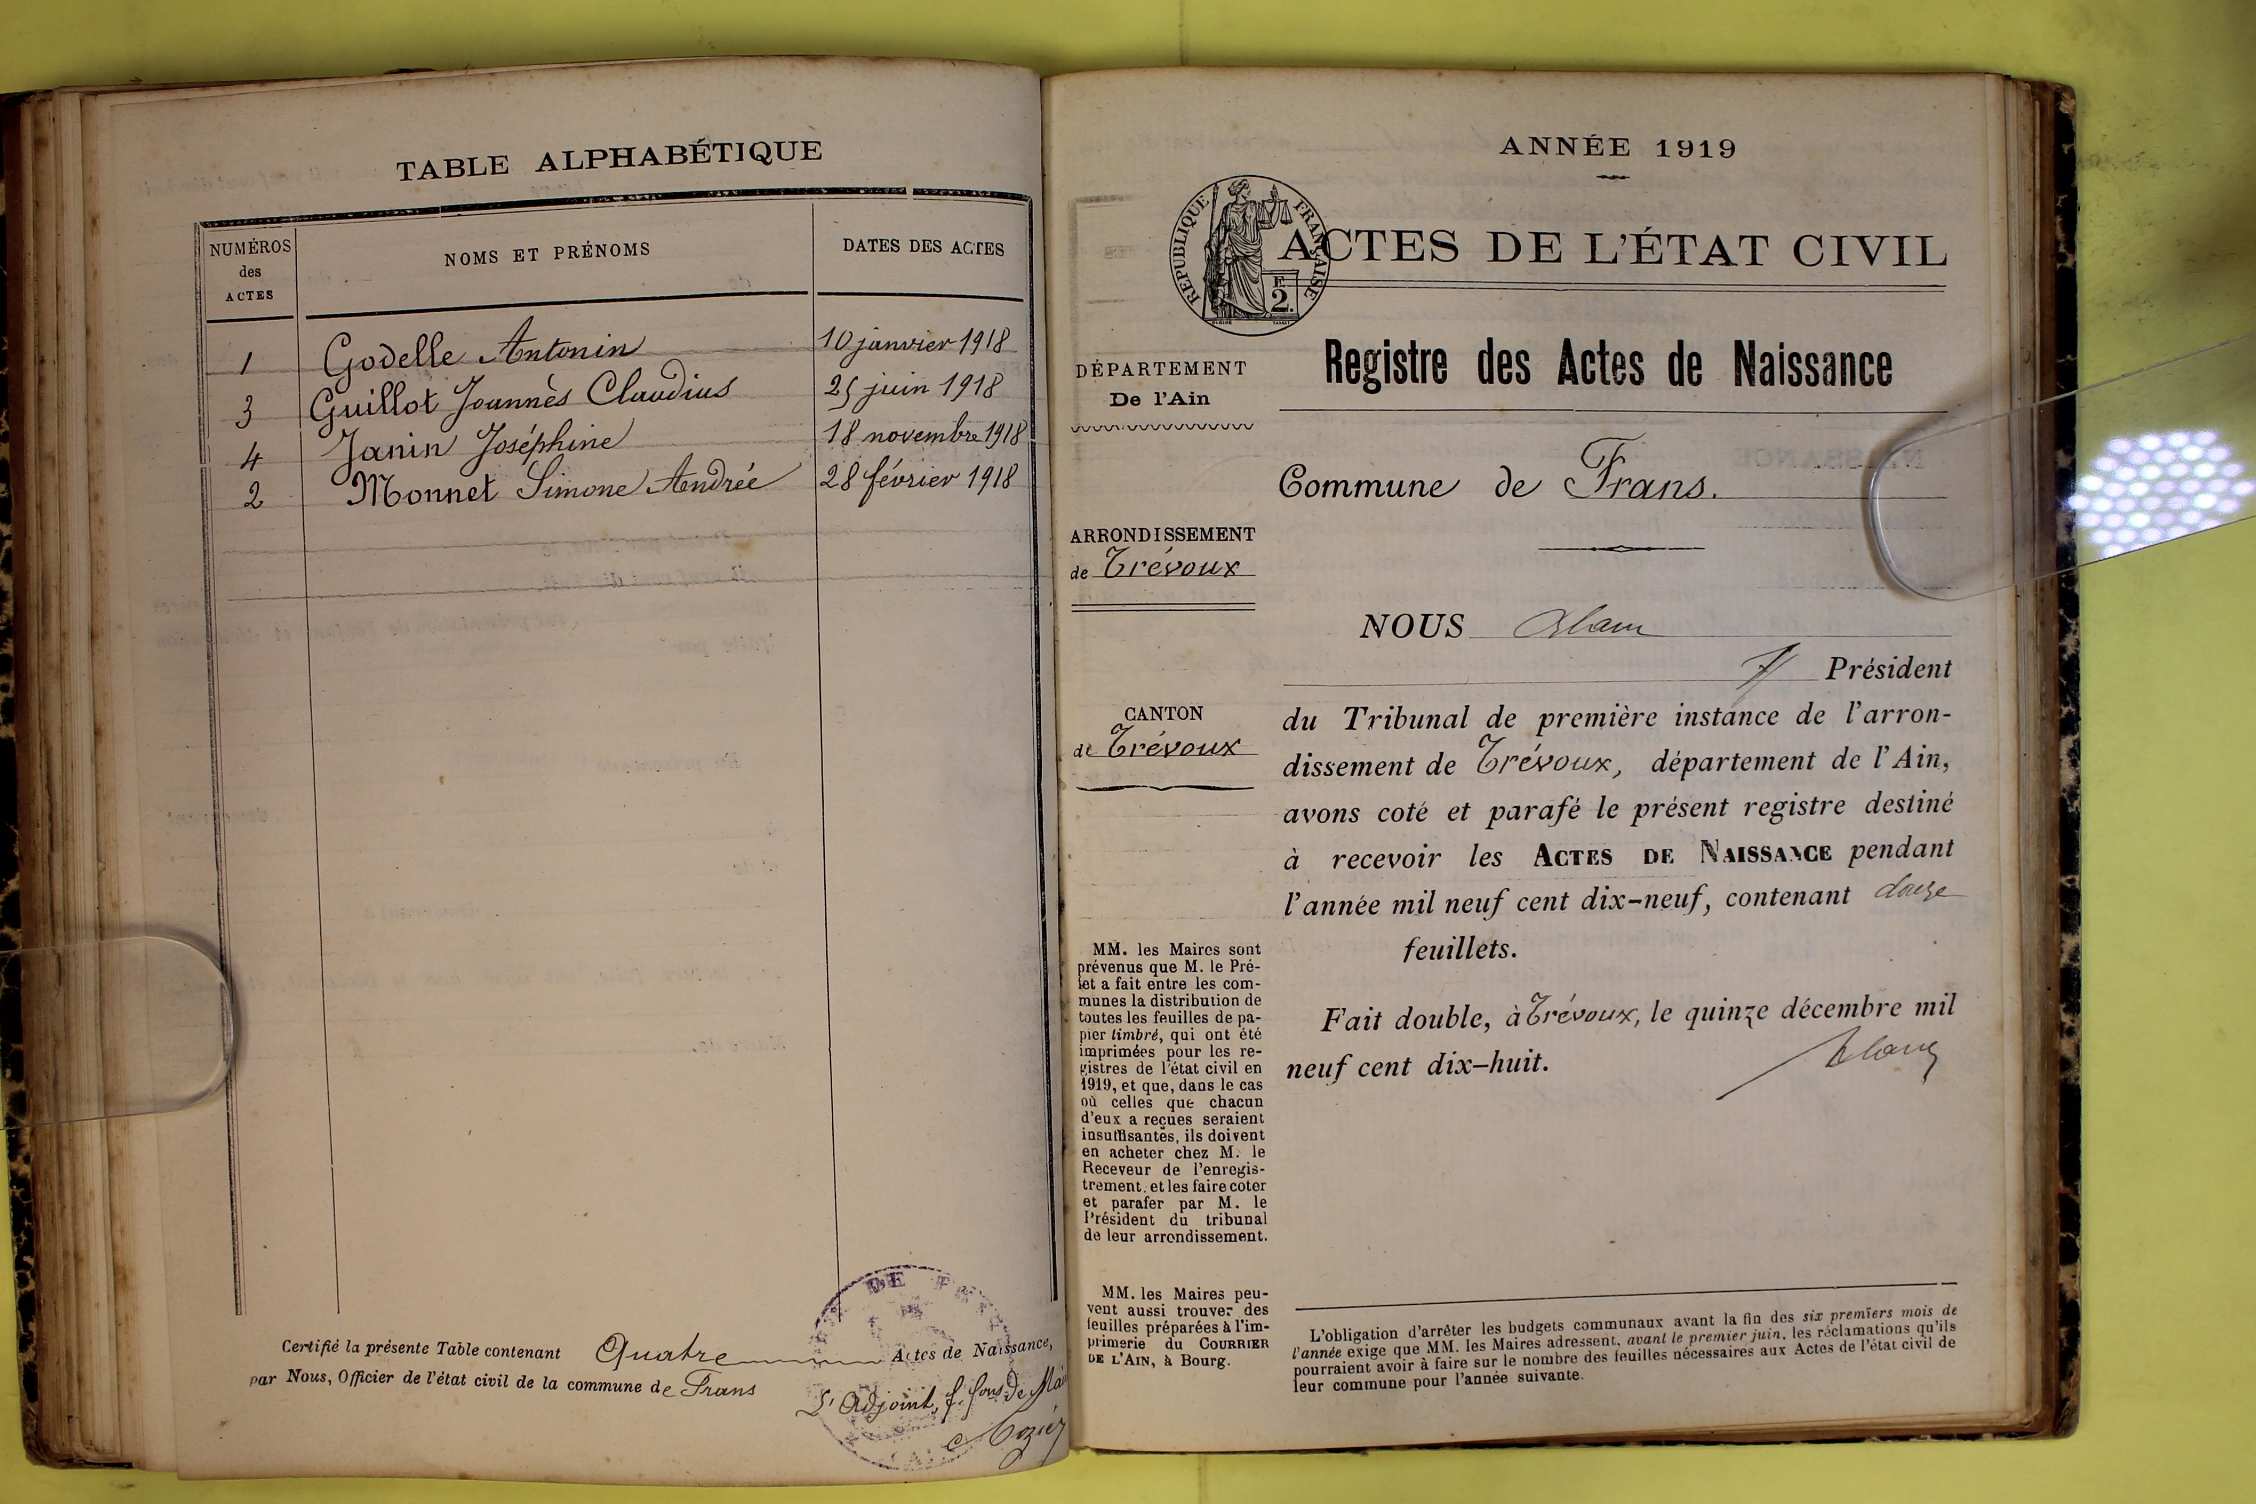 TABLE ALPHABÉTIQUE
NUMÉROS
des
ACTES
NOMS ET PRÉNOMS
DATES DES ACTES
1 Godelle Antonin 10 janvier 1918
3 Guillot Joannès Claudius 25 juin 1918
4 Janin Joséphine 18 novembre 1918
2 Monnet Simone Andrée 28 février 1918
Certifié la présente Table contenant Quatre Actes de Naissance,
par Nous, Officier de l'état civil de la commune de Frans
L'Adjoint, f. fons de
ANNÉE 1919
RÉPUBLIQUE FRANÇAISE
F.
2.
ACTES DE L'ÉTAT CIVIL
Registre des Actes de Naissance
DÉPARTEMENT
De l'Ain
Commune de Frans.
ARRONDISSEMENT
de Trévoux
NOUS
Président
CANTON
de Trévoux
du Tribunal de première instance de l'arron-
dissement de Trévoux, département de l'Ain,
avons coté et parafé le présent registre destiné
à recevoir les ACTES DE NAISSANCE pendant
l'année mil neuf cent dix-neuf, contenant douze
feuillets.
Fait double, à Trévoux, le quinze décembre mil
neuf cent dix-huit.
MM. les Maires sont
prévenus que M. le Pré-
fet a fait entre les com-
munes la distribution de
toutes les feuilles de pa-
pier timbré, qui ont été
imprimées pour les re-
gistres de l'état civil en
1919, et que, dans le cas
où celles que chacun
d'eux a reçues seraient
insuffisantes, ils doivent
en acheter chez M. le
Receveur de l'enregis-
trement, et les faire coter
et parafer par M. le
Président du tribunal
de leur arrondissement.
MM. les Maires peu-
vent aussi trouver des
feuilles préparées à l'im-
primerie du COURRIER
DE L'AIN, à Bourg.
L'obligation d'arrêter les budgets communaux avant la fin des six premiers mois de
l'année exige que MM. les Maires adressent, avant le premier juin, les réclamations qu'ils
pourraient avoir à faire sur le nombre des feuilles nécessaires aux Actes de l'état civil de
leur commune pour l'année suivante.